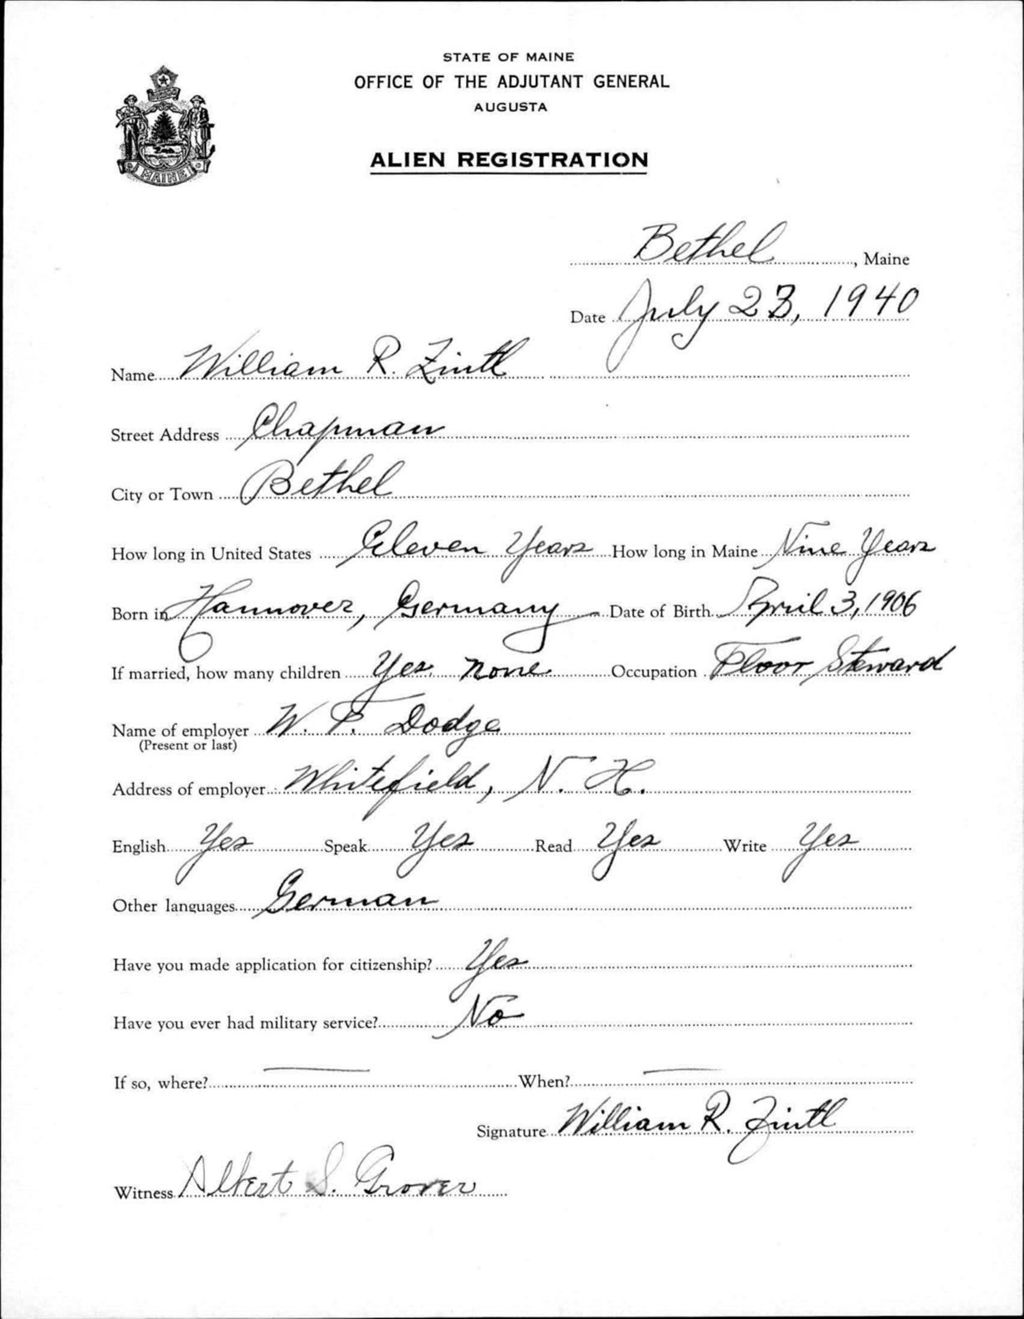 STATE OF MAINE
OFFICE OF THE ADJUTANT GENERAL
AUGUSTA
ALIEN REGISTRATION
MAINE
Bethel, Maine
Date July 23, 1940
Name William R. Zintl
Street Address Chapman
City or Town Bethel
How long in United States Eleven Years How long in Maine Nine Years
Born in Hannover, Germany Date of Birth April 3, 1906
If married, how many children Yes. none Occupation Floor Steward
Name of employer W. F. Dodge
(Present or last)
Address of employer Whitefield, N. H.
English Yes Speak Yes Read Yes Write Yes
Other languages German
Have you made application for citizenship? Yes
Have you ever had military service? No
If so, where? — When? —
Signature William R. Zintl
Witness Albert S. Grover